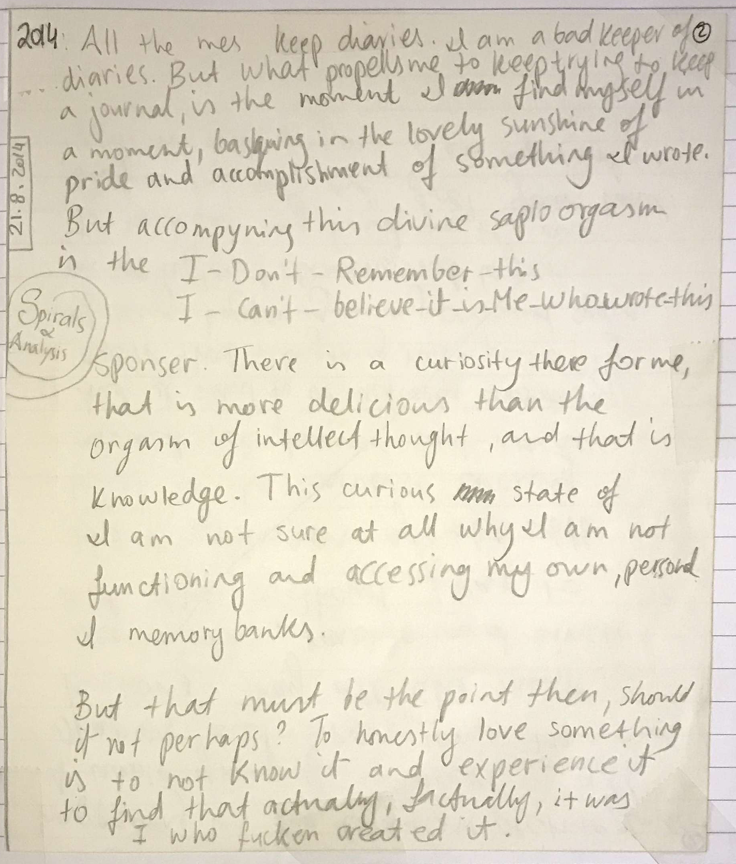 2014: All the mes keep diaries. I am a bad keeper of ②
... diaries. But what propells me to keep trying to keep
a journal, is the moment I find myself in
a moment, basking in the lovely sunshine of
pride and accomplishment of something I wrote.
21.8.2014
But accompyning this divine sapio orgasm
is the I-Don't-Remember-this
I-Can't-believe-it-is-Me-who-wrote-this
Spirals
&
Analysis
sponser. There is a curiosity there for me,
that is more delicious than the
orgasm of intellect thought, and that is
Knowledge. This curious state of
I am not sure at all why I am not
functioning and accessing my own, personal
I memory banks.
But that must be the point then, should
it not perhaps? To honestly love something
is to not know it and experience it
to find that actually, factually, it was
I who fucken created it.